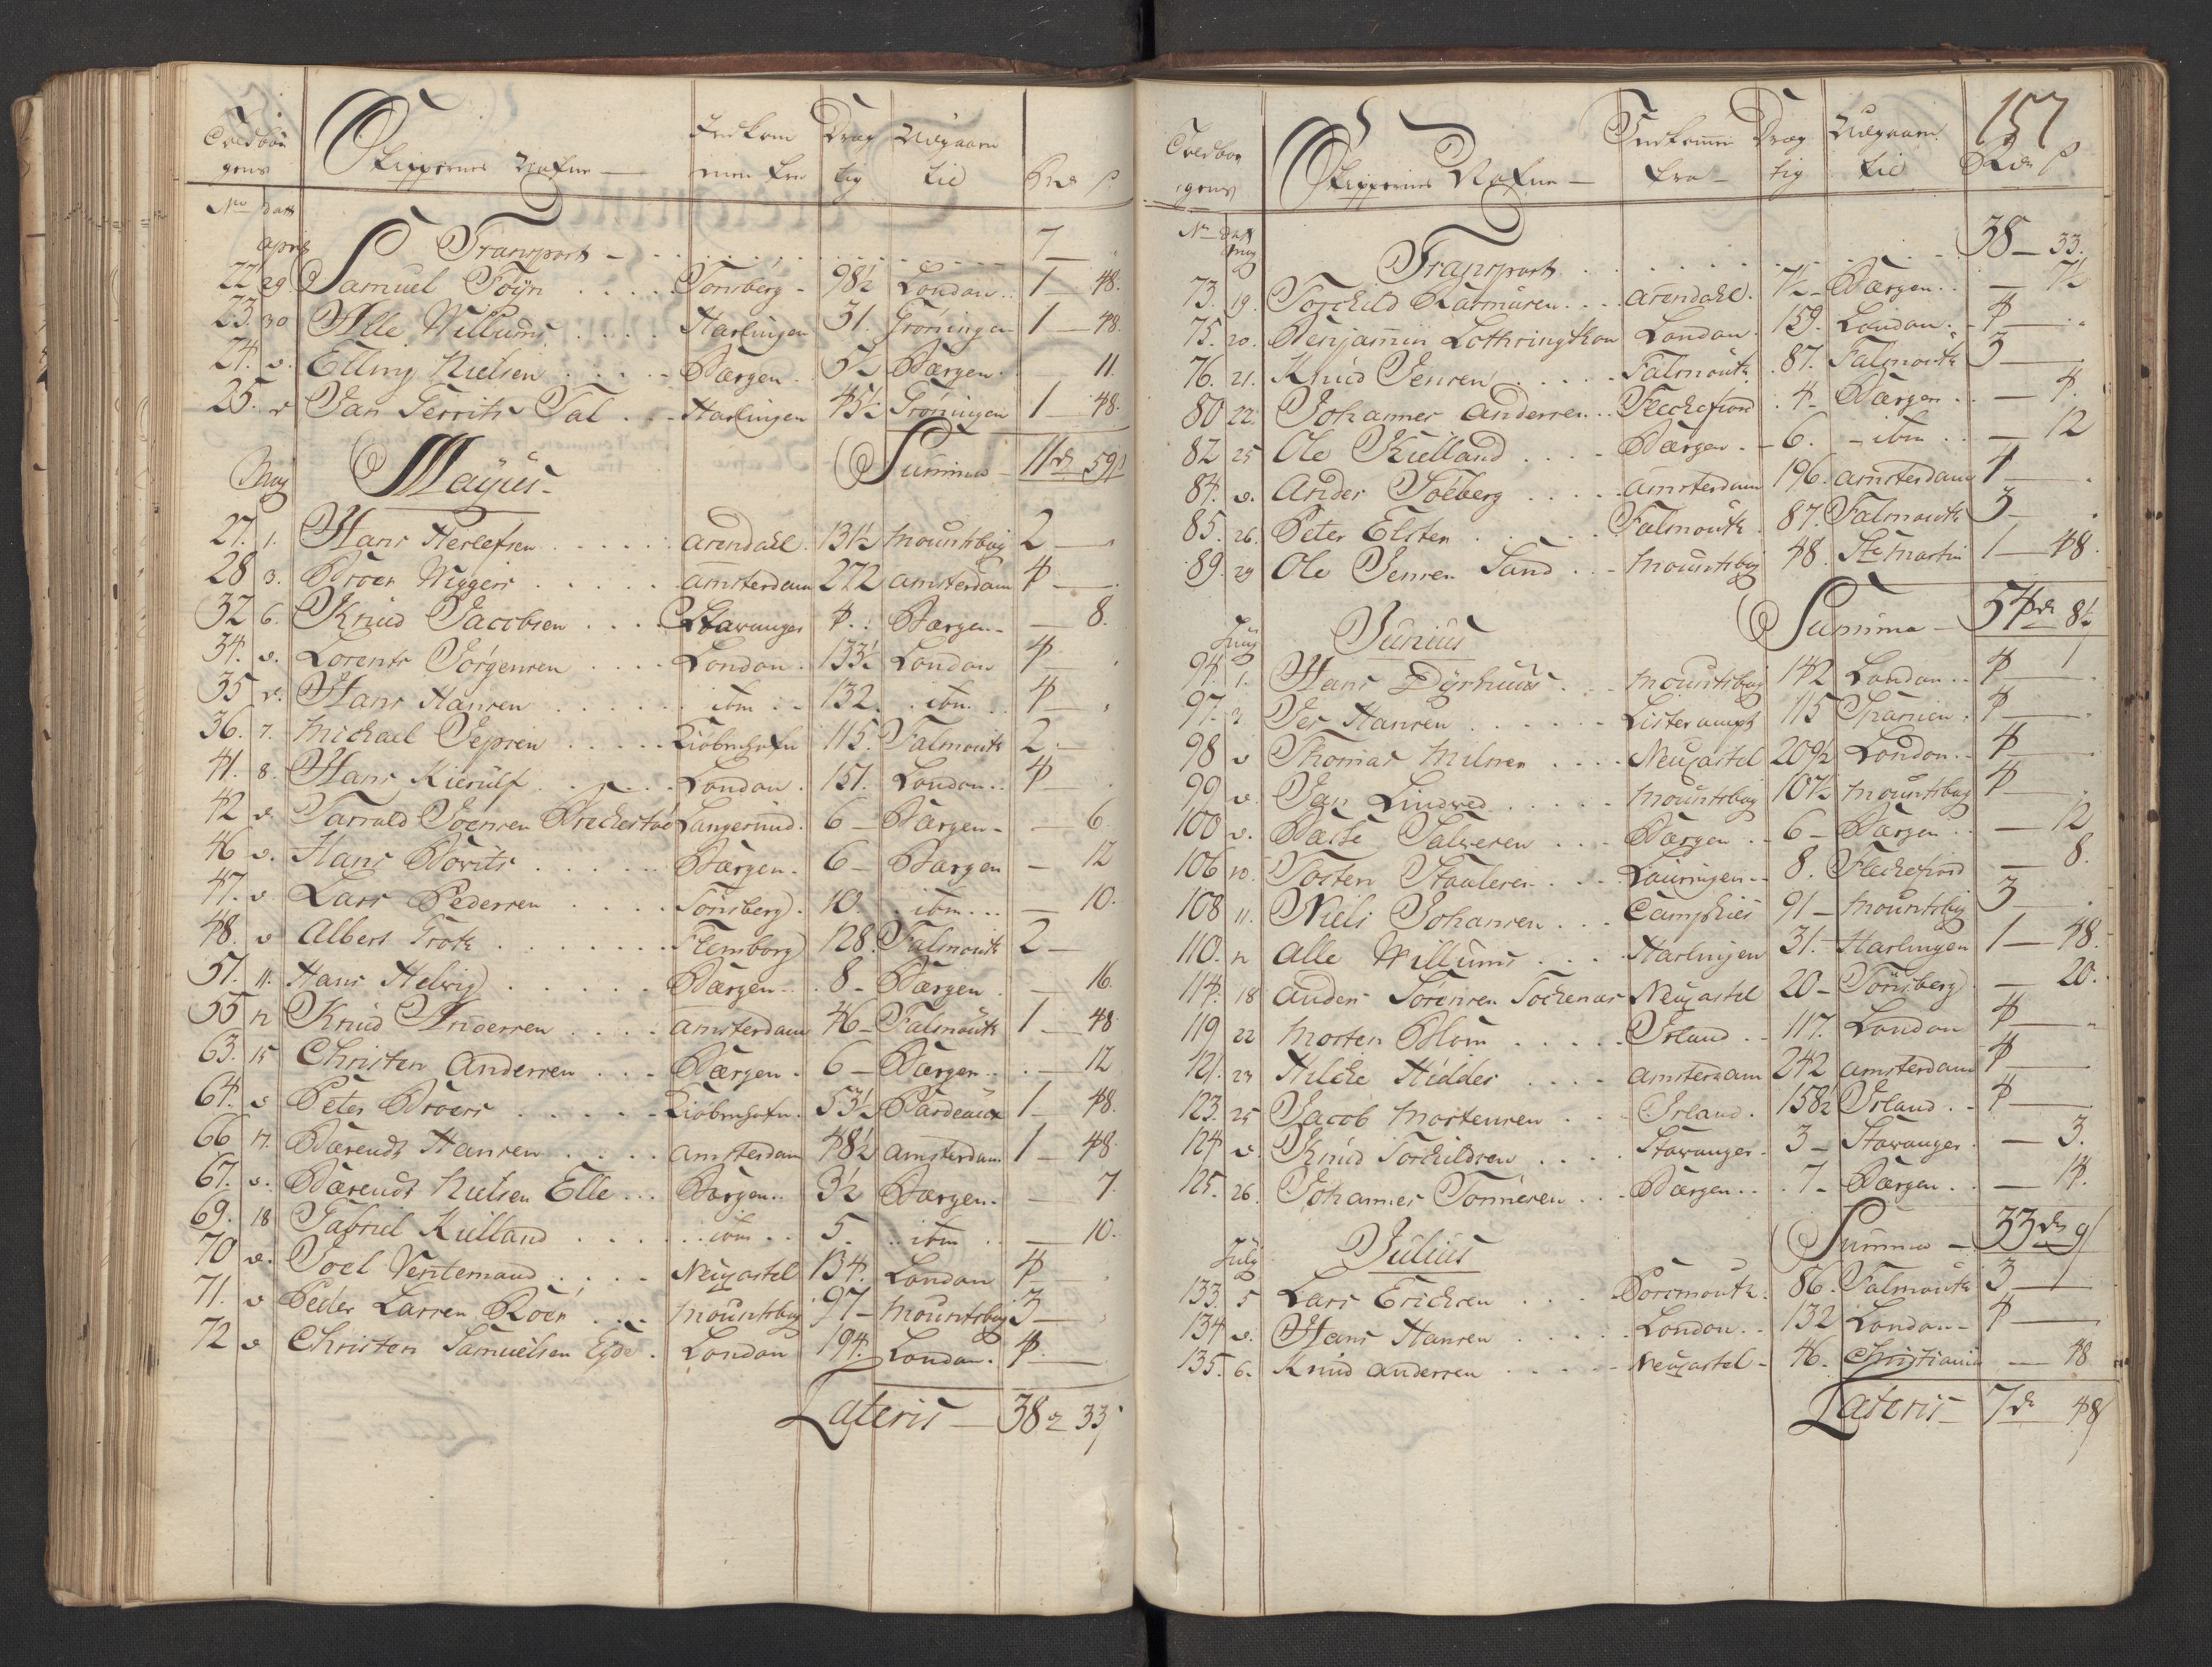 Toldbou Skippernes Nafne — Indkom Dræg Udgaaen
gens men fra tig til Rdr ß
No dat
April Transport — 7 —
22 29 Samuel Föyn Tonsberg - 98½ London 1 — 48.
23. 30 Alle Willums Harlingen 31. Gröningen 1 — 48.
24. d. Elling Nielsen Bærgen 5½ Bærgen 11.
25. d Jan Gerrits Tal Harlingen 45½ Gröningen 1 48.
Summa — 11 dr 59
May Mayus
27. 1. Hans Herlefsen arendahl 131½ mountsbay 2 —
28 3. Broer Wiggers amsterdam 272 amsterdam 4 —
32 6. Knud Jacobsen Stavanger 4. Bærgen — 8.
34. d. Lorents Jörgensen London 133½ London 4
35 d. Hans Hansen ibm 132. ibm 4 —
36. 7. Michael Jepsen Kiöbenhafn 115. Falmouth 2 —
41. 8. Hans Kierulf London 151. London 4 —
42 d. Tarrald Joensen Brekestöe Langesund. 6 — Bærgen — 6.
46 d. Hans Bovits Bærgen. 6 — Bærgen — 12
47. d Lars Pedersen Tönsberg. 10. ibm — 10.
48. d Albert Groth Flensborg 128. Falmouth 2 —
51. 11. Hans Helvig Bærgen 8 — Bærgen — 16.
55 12 Knud Andersen amsterdam 46 — Falmouth 1 — 48
63. 15 Christen Andersen Bærgen. 6 — Bærgen — 12
64. d Peter Broers Kiöbenhafn. 53½ Bardeaux 1 — 48.
66 17. Bærendt Hansen amsterdam 48½ amsterdam 1 — 48
67. d. Bærendt Nielsen Elle Bærgen 3½ Bærgen — 7.
69. 18 Gabriel Kielland ibm 5. ibm — 10.
70 d. Joel Ventemand Neucastel 134. London 4 —
71. d Peder Larsen Roer mountsbay 97 — mountsbay 3 —
72 d Christen Samuelsen Eyde London 194. London. 4 —
Lateris — 38 dr 33
157
Toldbou Skippernes Nafne — Indkommen Dræg Udgaaen
gens fra — tig til Rdr ß
No dat
May Transport 38 — 33.
73. 19. Torchild Rasmusen arendahl. 7½ — Bærgen — 7½
75. 20. Benjamin Lothringthon London 159. London 4 —
76. 21. Knud Jensen Falmouth 87. Falmouth 3 —
80 22. Johannes Andersen Fleckefiord 4 — Bærgen — 4.
82 25 Ole Kielland Bærgen — 6. ibm — 12
84. d. Ander Toeberg amsterdam 196. amsterdam 4 —
85. 26. Peter Elsten Falmouth 87. Falmouth 3 —
89. 29 Ole Jensen Sund mountsbay 48. Ste Martin 1 — 48.
Summa — 54 dr 8½
Juny Junius
94. 1. Hans Dyrhuus mountsbay 142 London 4 —
97. 3. Jes Hansen 115 Spanien 4 —
98 d Thomas Milnen Neucastel 209½ London 4 —
99 d Jan Lindred mountsbay 107½ mountsbay 4 —
100 d. Salvesen Bærgen 6 — Bærgen — 12
106 10. Tosten Staalesen 8. Fleckefiord — 8.
108 11. Niels Johansen 91 — mountsbay 3 —
110. 12 Alle Willums Harlingen 31. Harlingen 1 — 48.
114. 18 Anders Sörensen Neucastel 20 — Tönsberg — 20.
119 22 Morten Blom Irland 117. London 4 —
121. 23 Hilche Hidder amsterdam 242 amsterdam 4 —
123. 25 Jacob Mortensen Irland. 158½ Irland 4 —
124 d. Knud Torchildsen Stavanger 3 — Stavanger — 3.
125. 26. Johannes Tonnesen Bærgen 7 — Bærgen — 14.
Summa — 33 dr 9
July Julius
133. 5 Lars Erichsen Porsmouth. 86. Falmouth 3 —
134 d. Hans Hansen London 132 London — 4 —
135. 6. Knud Andersen Neucastel — 46. Christiania — 48
Lateris — 7 dr 48